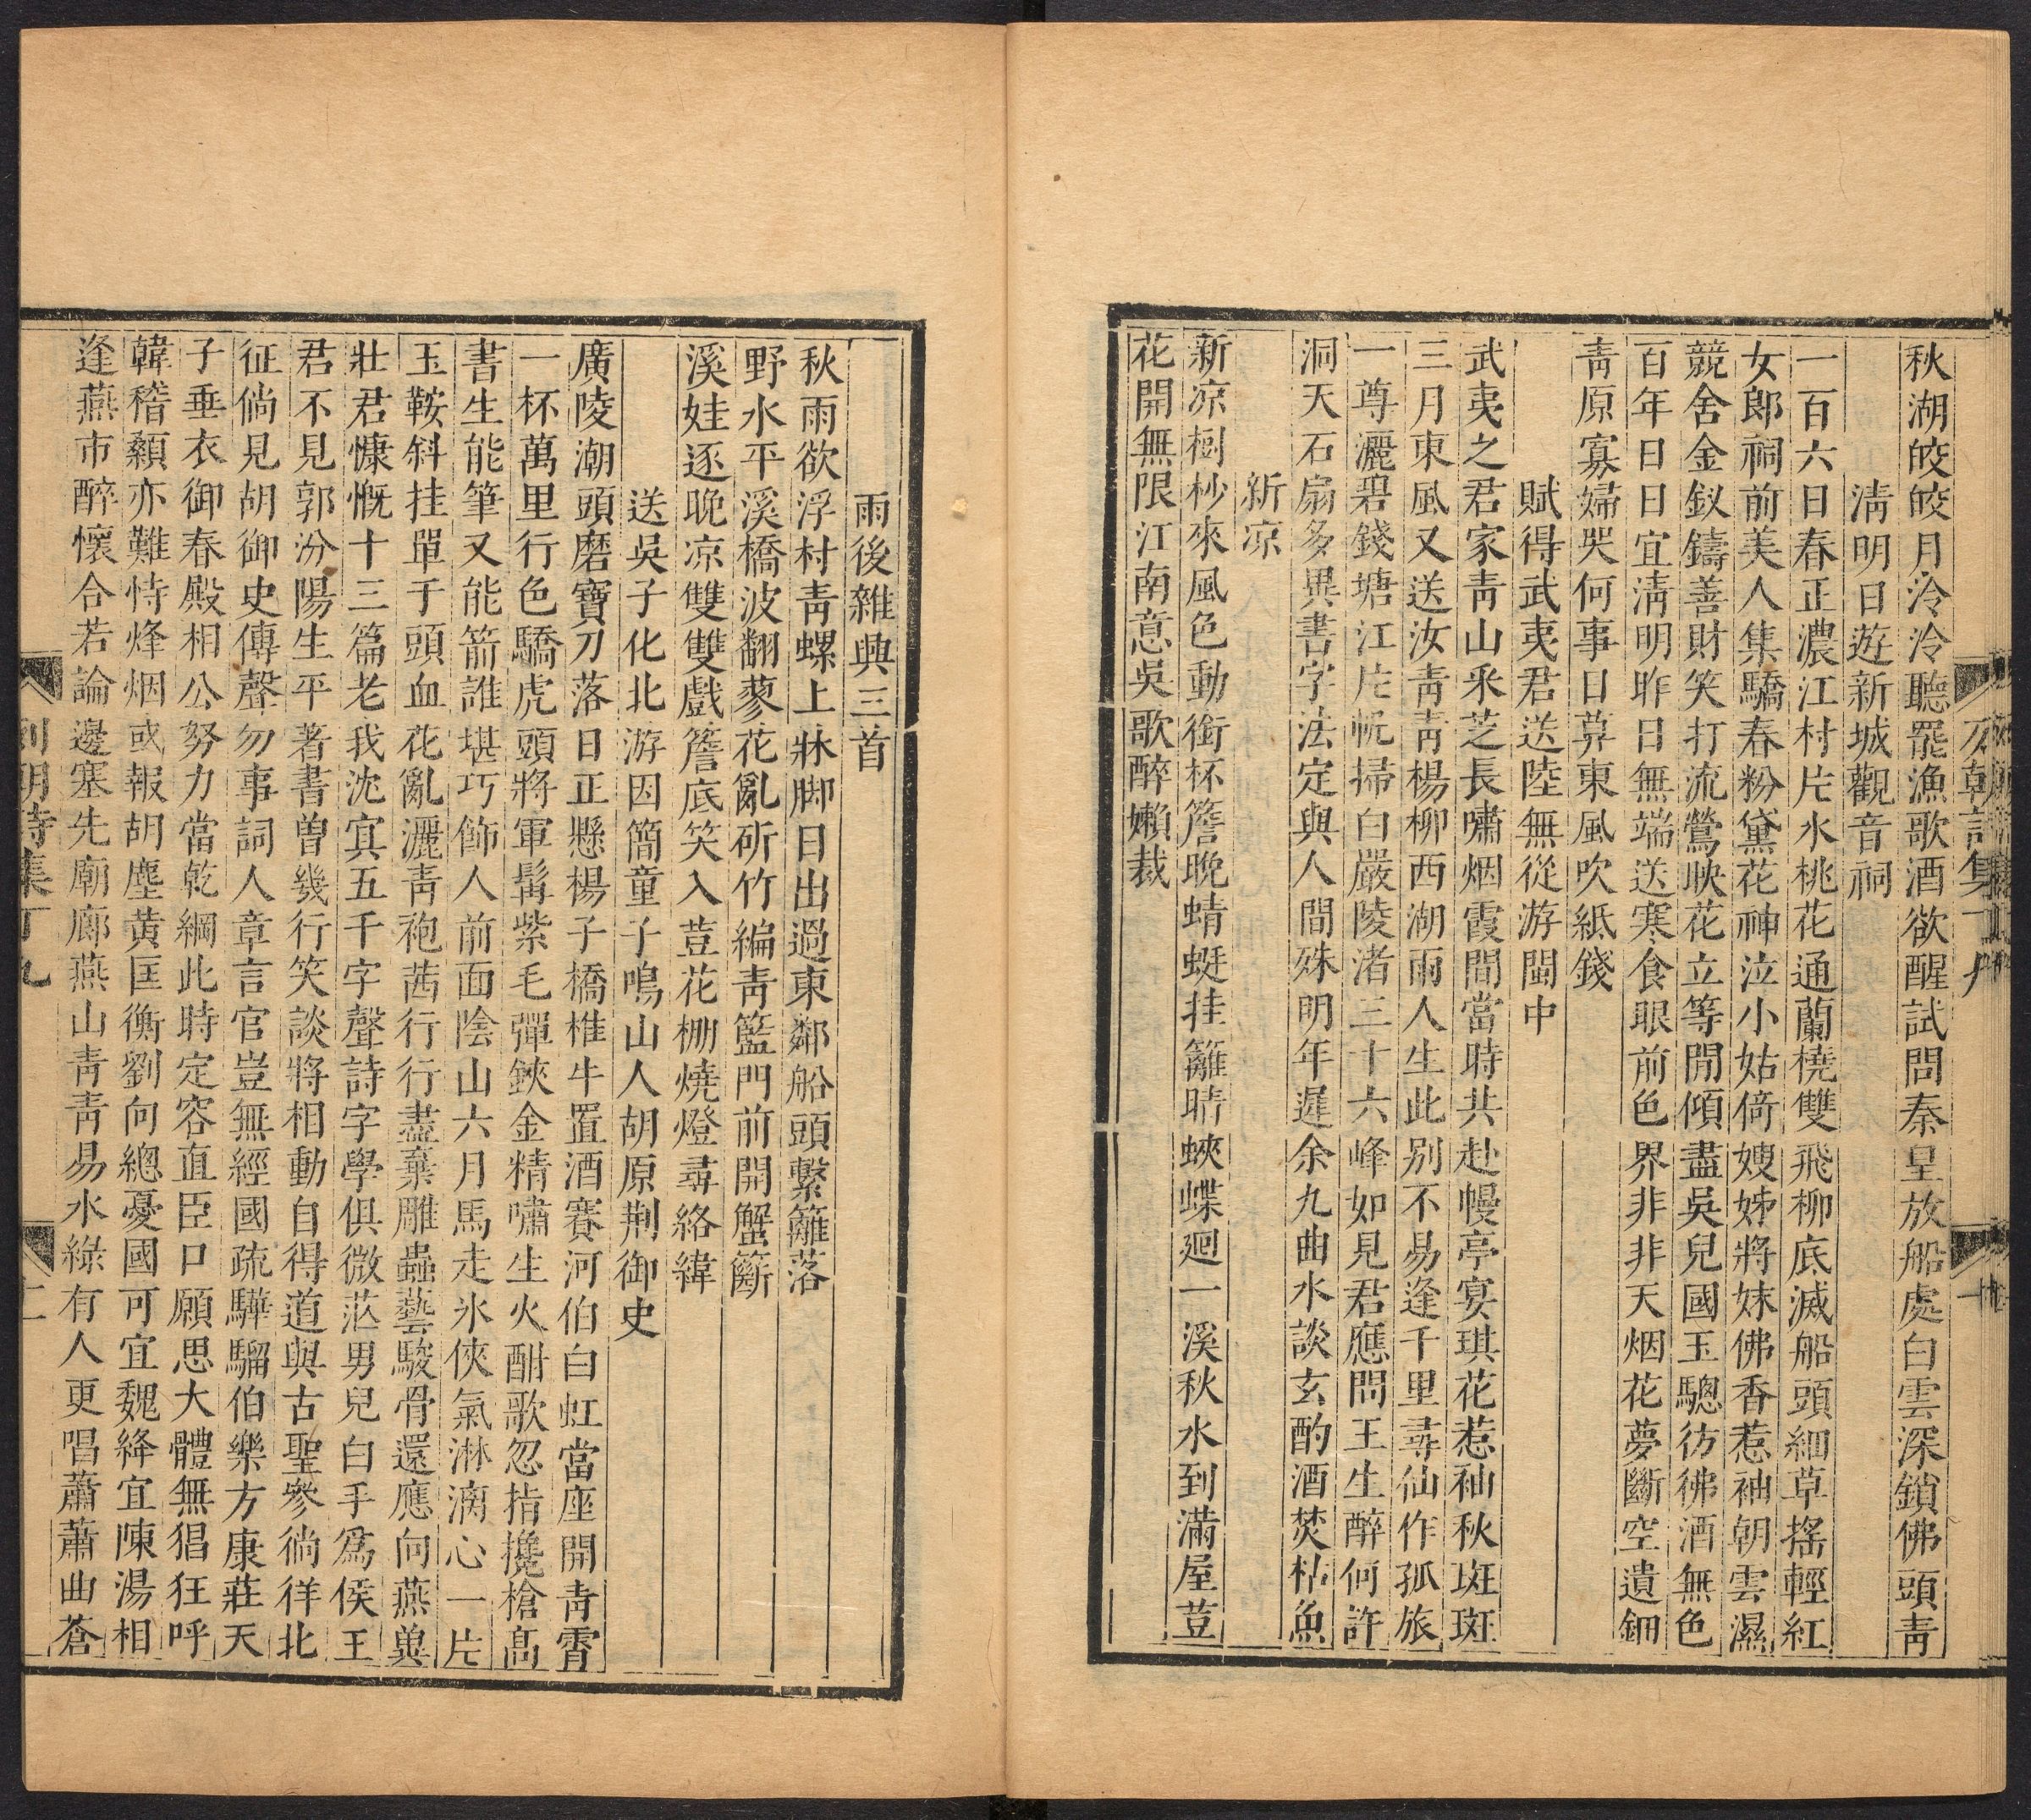 秋湖皎皎月泠泠聽罷漁歌酒欲醒試問秦皇放船處白雲深鎖佛頭青
清明日遊新城觀音祠
一百六日春正濃江村片水桃花通蘭橈雙飛柳底滅船頭細草搖輕紅
女郎祠前美人集驕春粉黛花神泣小姑倚嫂姊將妹佛香惹袖朝雲濕
競舍金釵鑄善財笑打流鶯映花立等閒傾盡吳兒國玉驄彷彿酒無色
百年日日宜清明昨日無端送寒食眼前色界非非天烟花夢斷空遺鈿
青原寡婦哭何事日莫東風吹紙錢
賦得武夷君送陸無從游閩中
武夷之君家青山采芝長嘯烟霞間當時共赴幔亭宴琪花惹袖秋斑斑
三月東風又送汝青青楊柳西湖雨人生此別不易逢千里尋仙作孤旅
一尊灑碧錢塘江片帆掃白嚴陵渚三十六峰如見君應問王生醉何許
洞天石扇多異書字法定與人間殊明年遲余九曲水談玄酌酒焚枯魚
新凉
新凉樹杪來風色動銜杯簷晩蜻蜓挂籬晴蛺蝶廻一溪秋水到滿屋荳
花開無限江南意吳歌醉嬾裁
列朝詩集丁九
雨後雜興三首
秋雨欲浮村青螺上牀脚日出過東鄰船頭繫籬落
野水平溪橋波翻蓼花亂斫竹編青籃門前開蟹籪
溪娃逐晚凉雙雙戲簷底笑入荳花棚燒燈尋絡緯
送吳子化北游因簡童子鳴山人胡原荆御史
廣陵潮頭磨寶刀落日正懸楊子橋椎牛置酒賽河伯白虹當座開青霄
一杯萬里行色驕虎頭將軍髯紫毛彈鋏金精嘯生火酣歌忽指攙槍髙
書生能筆又能箭誰堪巧飾人前面陰山六月馬走氷俠氣淋漓心一片
玉鞍斜挂單于頭血花亂灑青袍茜行行盡棄雕蟲藝駿骨還應向燕兾
壯君慷慨十三篇老我沈㝠五千字聲詩字學俱微茫男兒白手爲侯王
君不見郭汾陽生平著書曾幾行笑談將相動自得道與古聖參徜徉北
征倘見胡御史傳聲勿事詞人章言官豈無經國疏驊騮伯樂方康莊天
子垂衣御春殿相公努力當乾綱此時定容直臣口願思大體無猖狂呼
韓稽顙亦難恃烽烟或報胡塵黃匡衡劉向總憂國可宜魏絳宜陳湯相
逢燕市醉懷合若論邊塞先廟廊燕山青青易水綠有人更唱蕭蕭曲蒼